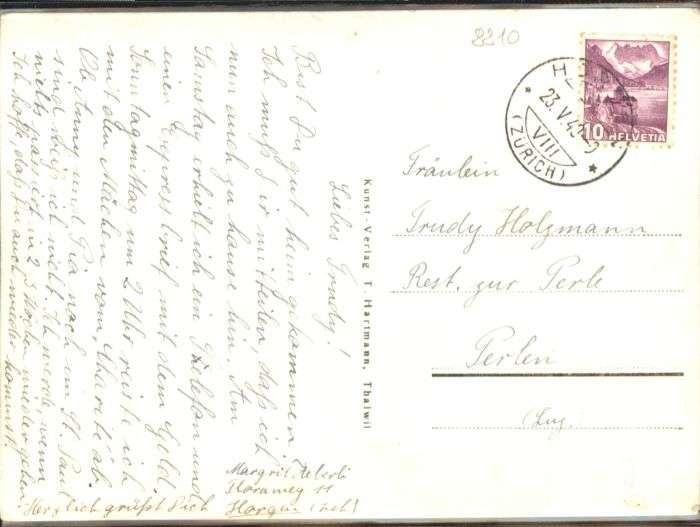 8210
HELVETIA
10
23.V.4
VIII
(ZÜRICH)
Fräulein
Trudy Holzmann
Rest. zur Perle
Perlen
(Luz.)
Kunst-Verlag T. Hartmann, Thalwil
Liebes Trudy!
Bist Du gut heim gekommen
Ich muss Dir mitteilen, dass ich
nun auch zu hause bin. Am
Samstag erhielt ich ein Telefon und
einen Expressbrief mit dem Geld.
Sonntagmittag um 2 Uhr reiste ich
mit den Mädchen vom Charité ab.
und Pia noch im St. Paul
sind weiss ich nicht. Ich werde, wenn
nichts passiert in 2-3 Wochen wieder gehen.
Ich hoffe, dass Du auch wieder kommst.
Herzlich grüsst Dich
Margrit Aeberli
11
Horgen (Zch)